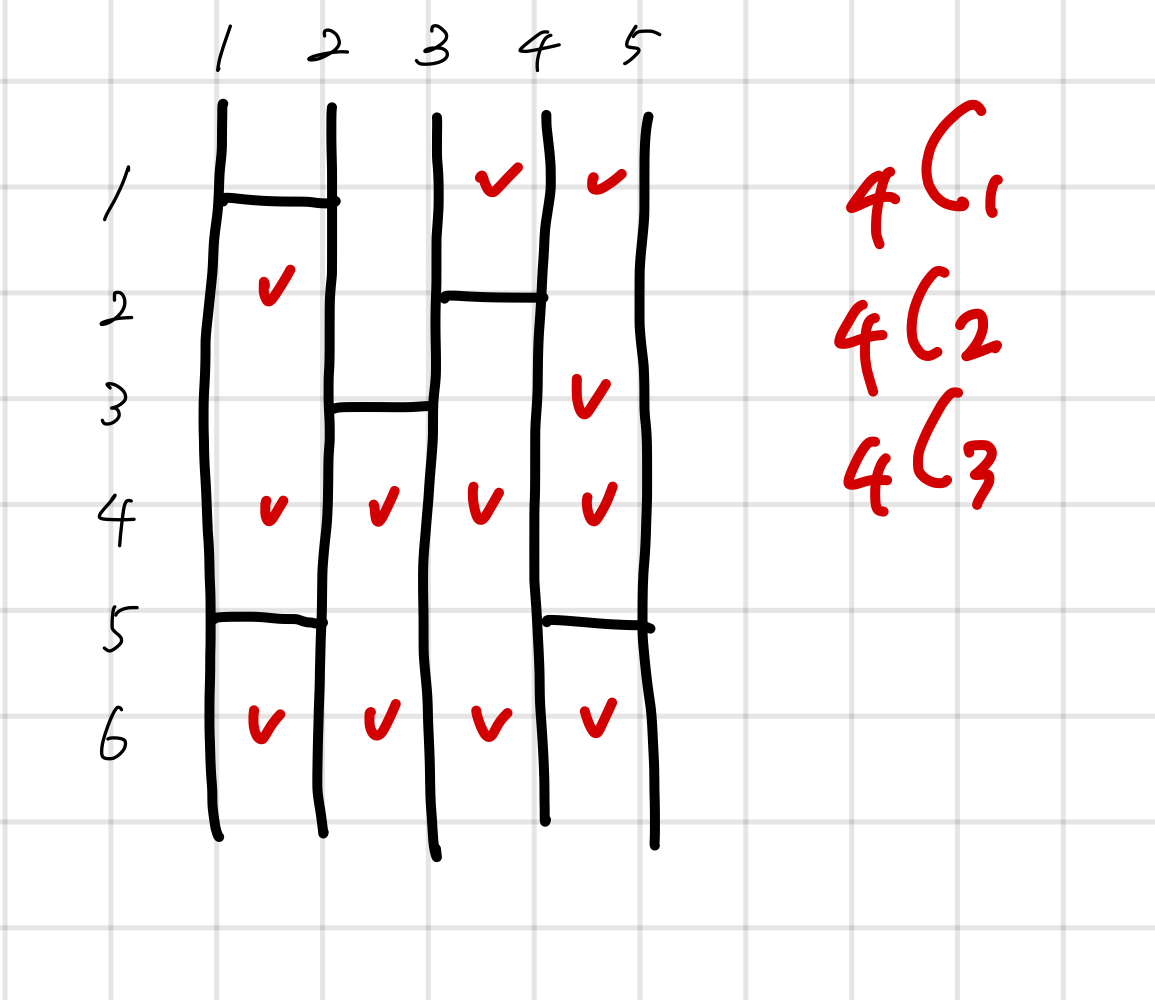 1 2 3 4 5
1
2
3
4
5
6
4C1
4C2
4C3